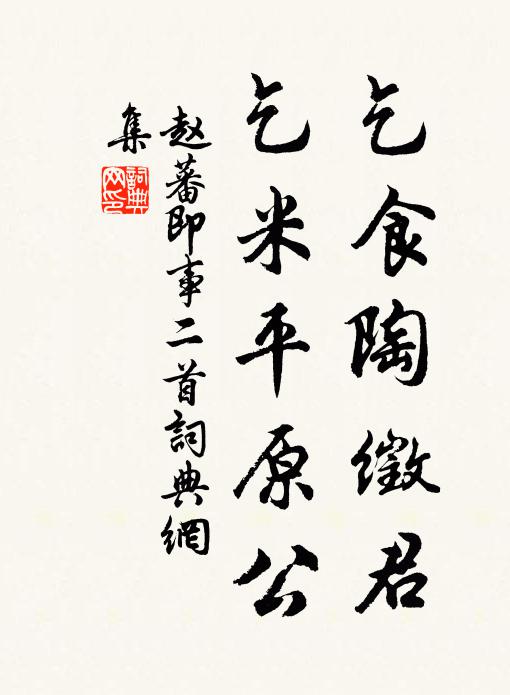 乞食陶徵君
乞米平原公
赵蕃即事二首詞典網
集
詞典
网印